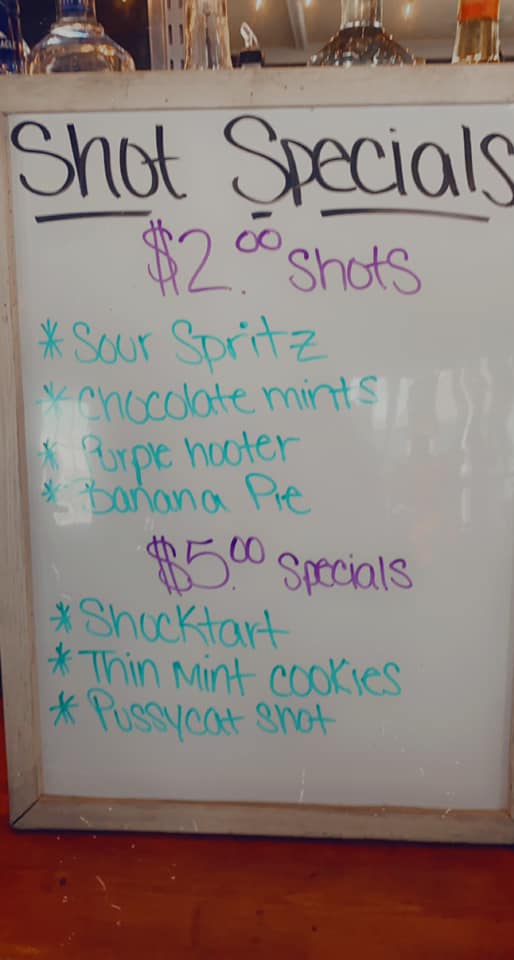 Shot Specials
$2.00 Shots
* Sour Spritz
* Chocolate mints
* Purple hooter
* Banana Pie
$5.00 Specials
* Shocktart
* Thin Mint cookies
* Pussycat shot